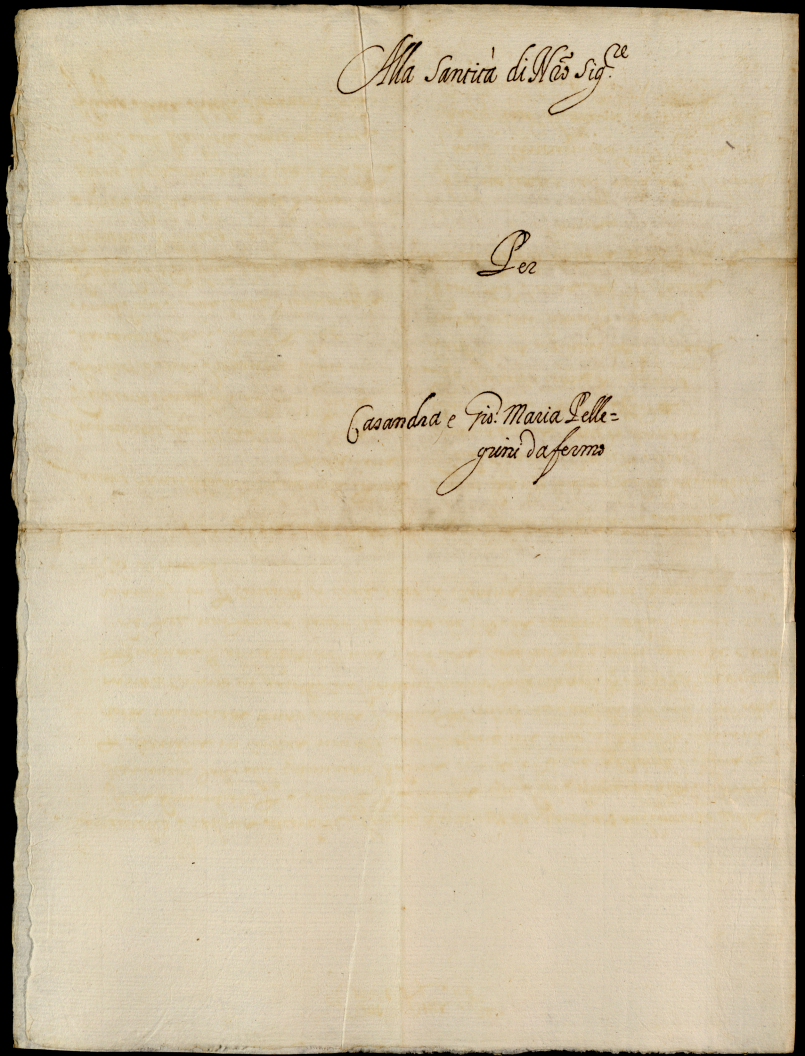 Alla Santità di Nrõ Sig.re
Per
Casandra e Gio. Maria Pelle=
grini da fermo